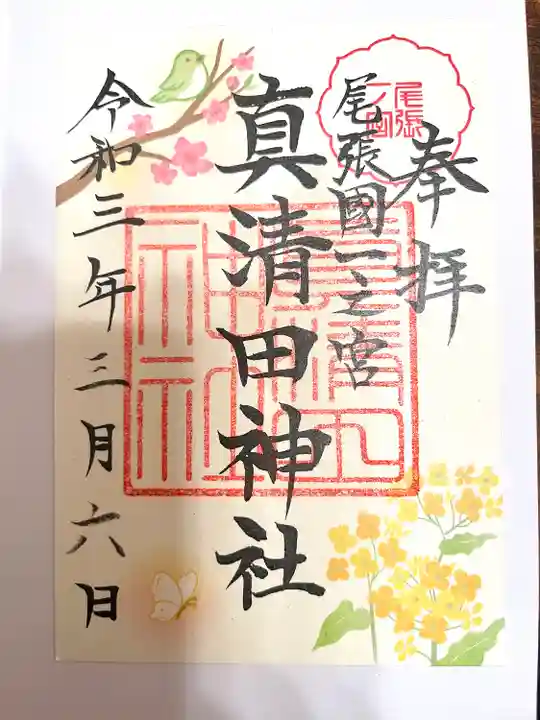 奉拝
尾張國一之宮
真清田神社
令和三年三月六日
尾張
一ノ宮
真清田
神社